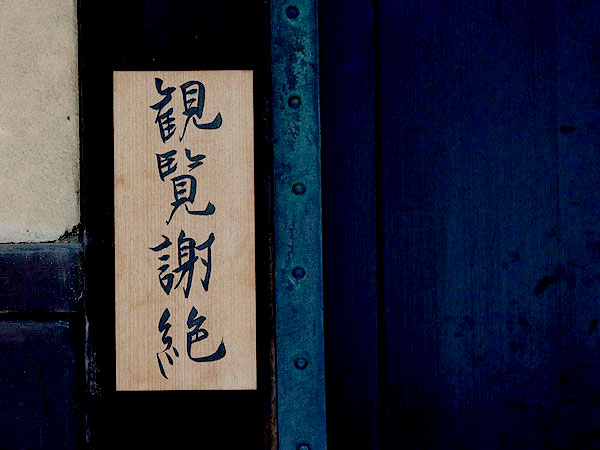 観覧謝絶